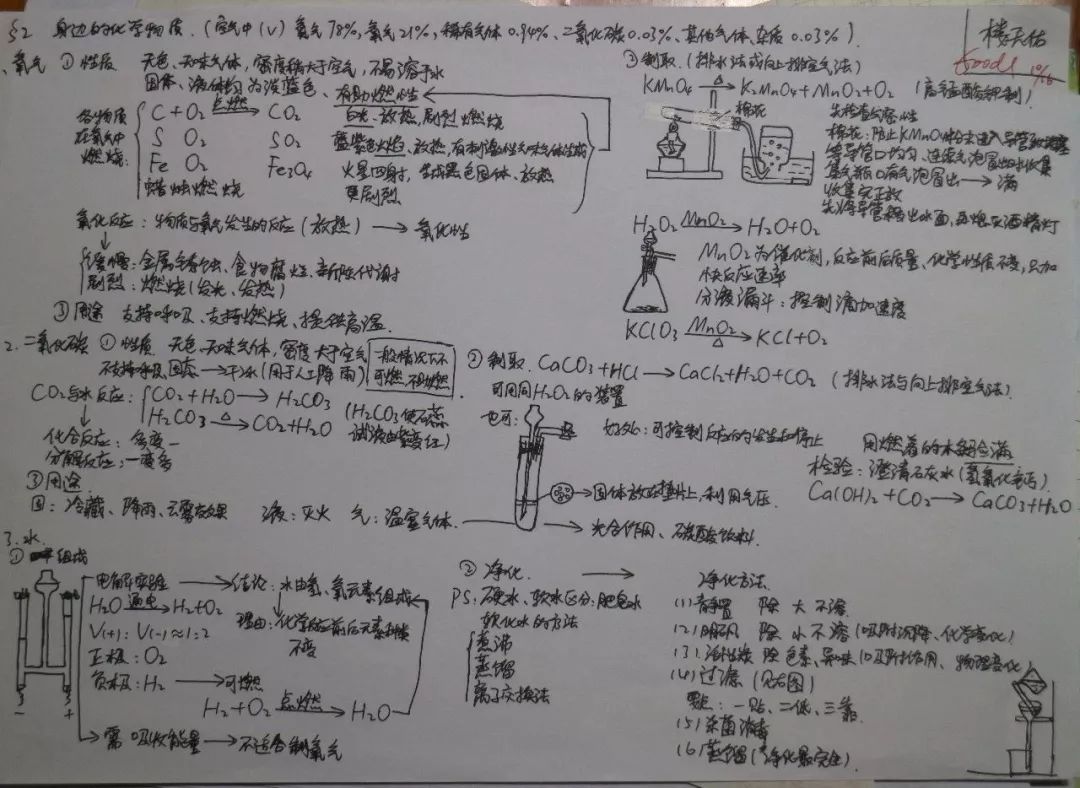 §2 身边的化学物质.(空气中(V)氮气78%,氧气21%,稀有气体0.94%、二氧化碳0.03%、其他气体、杂质0.03%).
楼天佑
Good! 1%
、氧气 ①性质 无色、无味气体,密度稍大于空气,不易溶于水
固体、液体均为淡蓝色、有助燃性
各物质在氧气中燃烧:
C + O₂ 点燃→ CO₂ 白光、放热、剧烈燃烧
S O₂ SO₂ 蓝紫色火焰、放热、有刺激性气味气体生成
Fe O₂ Fe₃O₄ 火星四射,生成黑色固体、放热
蜡烛燃烧 更剧烈
氧化反应:物质与氧发生的反应(放热)→氧化性
缓慢:金属锈蚀、食物腐烂、新陈代谢
剧烈:燃烧(发光、发热)
③用途 支持呼吸、支持燃烧、提供高温.
③制取.(排水法或向上排空气法)
KMnO₄ △→ K₂MnO₄+MnO₂+O₂ (高锰酸钾制)
棉花
先检查气密性
棉花:防止KMnO₄粉末进入导管
等导管口均匀、连续气泡冒出时收集
集气瓶口有气泡冒出→满
收集完
先将导管移出水面,再熄灭酒精灯
H₂O₂ MnO₂→ H₂O+O₂
MnO₂为催化剂,反应前后质量、化学性质不变,只加
快反应速率
分液漏斗:控制滴加速度
KClO₃ MnO₂△→ KCl+O₂
2.二氧化碳 ①性质 无色、无味气体,密度大于空气 一般情况下不可燃、不助燃
不支持呼吸、固态→干冰(用于人工降雨)
CO₂与水反应: CO₂+H₂O→H₂CO₃
H₂CO₃ △→ CO₂+H₂O (H₂CO₃使石蕊试液由紫变红)
化合反应:多变一
分解反应:一变多
③用途
固:冷藏、降雨、云雾效果 液:灭火 气:温室气体.
→光合作用、碳酸饮料.
②制取. CaCO₃+HCl→CaCl₂+H₂O+CO₂ (排水法与向上排空气法).
可用同H₂O₂的装置
也可: 好处:可控制反应的发生和停止
→固体放在垫片上,利用气压.
用燃着的木条验满
检验:澄清石灰水(氢氧化钙)
Ca(OH)₂+CO₂→CaCO₃+H₂O
3.水.
①组成
电解实验→结论:水由氢、氧元素组成
H₂O 通电→ H₂+O₂ 理由:化学反应前后元素种类不变
V(+):V(-)≈1:2
正极:O₂
负极:H₂→可燃
H₂+O₂ 点燃→ H₂O
- +
→需吸收能量→不适合制氧气
②净化. →
PS:硬水、软水区分:肥皂水
软化水的方法
煮沸
蒸馏
离子交换法
净化方法.
(1)静置 除 大 不溶
(2)明矾 除 小 不溶(吸附沉降、化学变化)
(3)活性炭 除 色素、异味(吸附作用、物理变化
(4)过滤 (见右图)
要点:一贴、二低、三靠.
(5)杀菌消毒
(6)蒸馏(净化最完全).